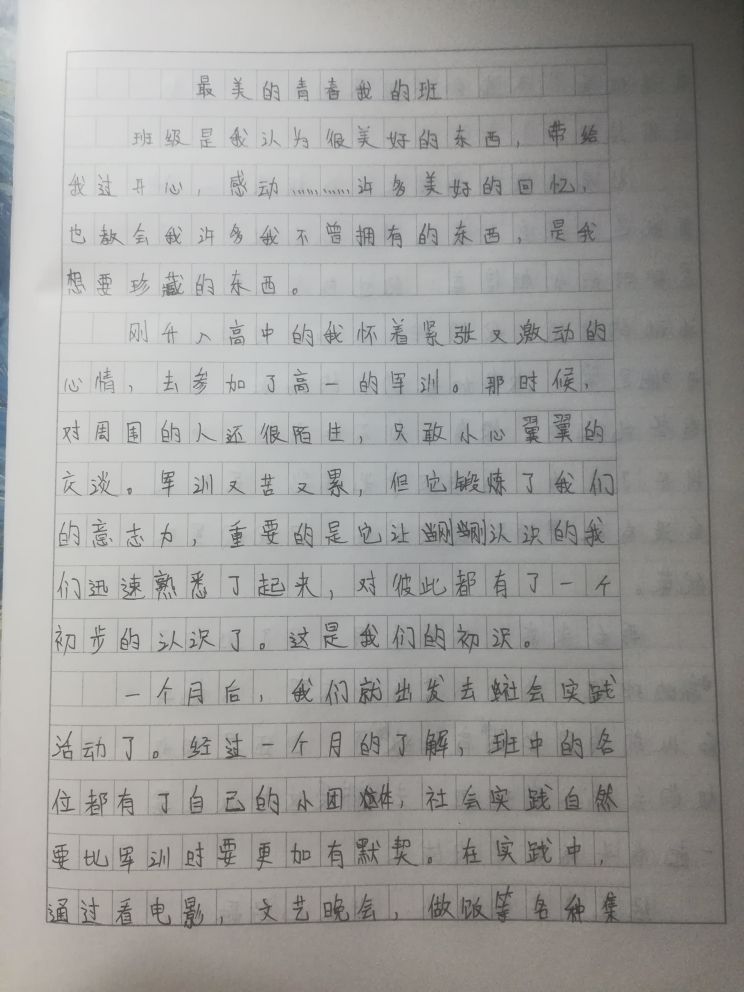 最美的青春我的班
班级是我认为很美好的东西，带给
我过开心，感动…………许多美好的回忆，
也教会我许多我不曾拥有的东西，是我
想要珍藏的东西。
刚升入高中的我怀着紧张又激动的
心情，去参加了高一的军训。那时候，
对周围的人还很陌生，只敢小心翼翼的
交谈。军训又苦又累，但它锻炼了我们
的意志力，重要的是它让刚刚认识的我
们迅速熟悉了起来，对彼此都有了一个
初步的认识了。这是我们的初识。
一个月后，我们就出发去社会实践
活动了。经过一个月的了解，班中的各
位都有了自己的小团体，社会实践自然
要比军训时要更加有默契。在实践中，
通过看电影，文艺晚会，做饭等各种集